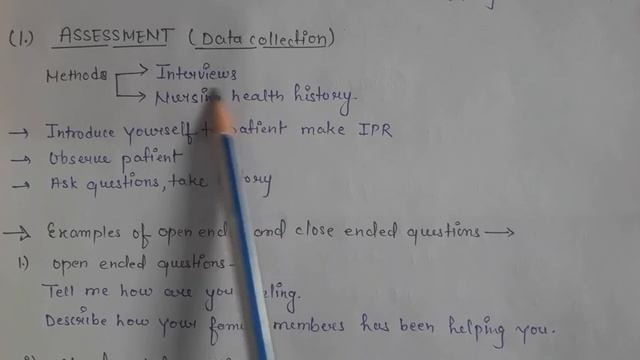 (1.) ASSESSMENT (Data collection)
Methods → Interviews
→ Nursing health history.
→ Introduce yourself patient make IPR
→ Observe patient
→ Ask questions, take
→ Examples of open and close ended questions →
1.) open ended questions-
Tell me how are you
Describe how your members has been helping you.